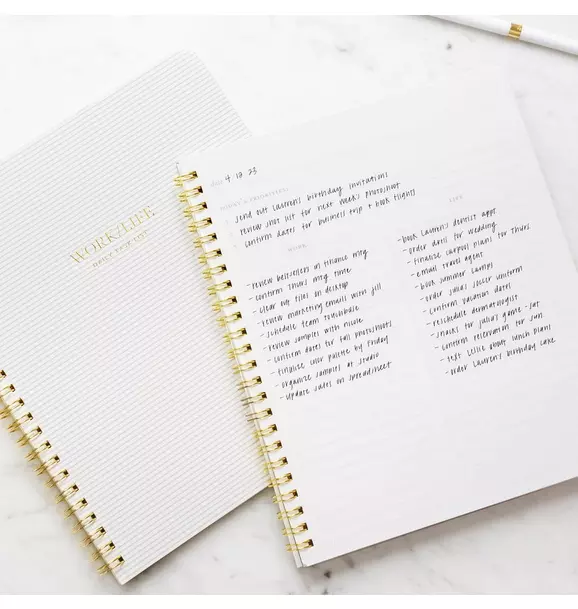 WORK/LIFE
DAILY TASK LIST
date 4.12.23
TODAY'S PRIORITIES:
send out lauren's birthday invitations
review shot list for next weeks photoshoot
confirm dates for business trip + book flights
WORK
- review bestsellers in finance mtg
- confirm thurs mtg time
- clear out files on desktop
- review marketing emails with jill
- schedule team touchbase
- review samples with nicole
- confirm dates for fall photoshoots
- finalize color palette by friday
- organize samples at studio
- update sales on spreadsheet
LIFE
- book lauren's dentist appt
- order dress for wedding
- finalize carpool plans for thurs
- email travel agent
- book summer camps
- order julia's soccer uniform
- confirm vacation dates
- reschedule dermatologist
- snacks for julia's game - sat
- confirm reservation for sun
- text leslie about lunch plans
- order lauren's birthday cake